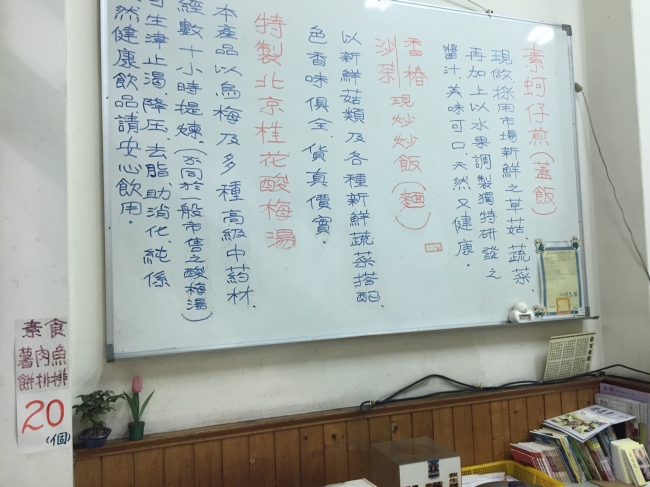 素蚵仔煎(蓋飯)
現做採用市場新鮮之草菇、蔬菜、
再加上以水果調製獨特研發之
醬汁、美味可口、天然又健康。
香椿
沙茶
現炒炒飯(麵)
以新鮮菇類及各種新鮮蔬菜搭配、
色香味俱全、貨真價實。
特製北京桂花酸梅湯
本產品以烏梅及多種高級中药材、
經數十小時提煉、(不同於一般市售之酸梅湯)
可生津止渴、降压、去脂、助消化、純係
天然健康飲品請安心飲用。
素食
魚排
肉排
薯餅
20
(個)